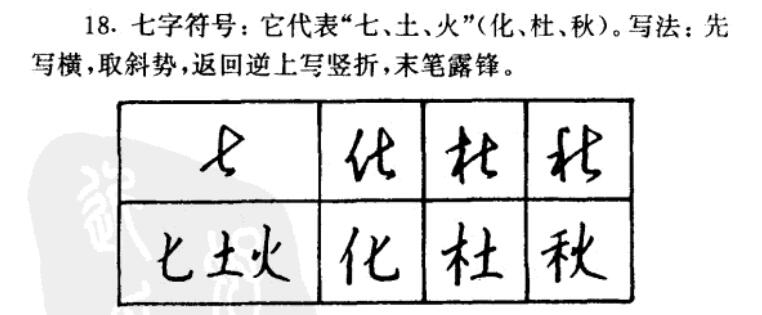 18. 七字符号：它代表“七、土、火”(化、杜、秋)。写法：先
写横，取斜势，返回逆上写竖折，末笔露锋。
七 化 杜 秋
七土火 化 杜 秋